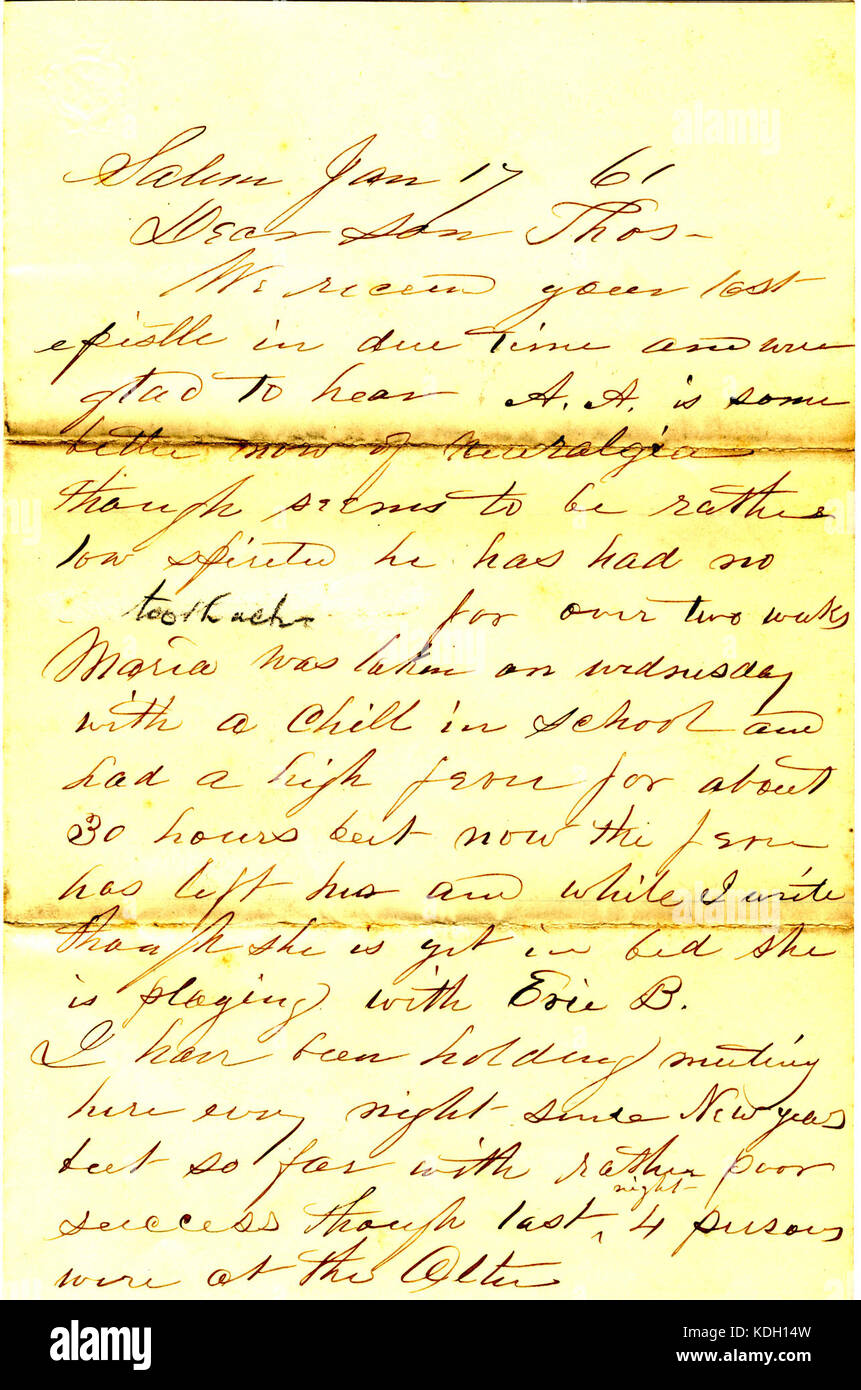 Salem Jan 17 61
Dear Son Thos-
We receive your last
epistle in due time and were
glad to hear A. A. is some
better now of neuralgia
though seems to be rather
low spirited he has had no
toothach for over two weeks
Maria was taken on wednesday
with a Chill in school and
had a high fever for about
30 hours but now the fever
has left her and while I write
though she is yet in bed she
is playing with Evie B.
I have been holding meeting
here every night since New years
but so far with rather poor
success though last night 4 persons
were at the Alter
alamy
Image ID: KD1H14W
www.alamy.com